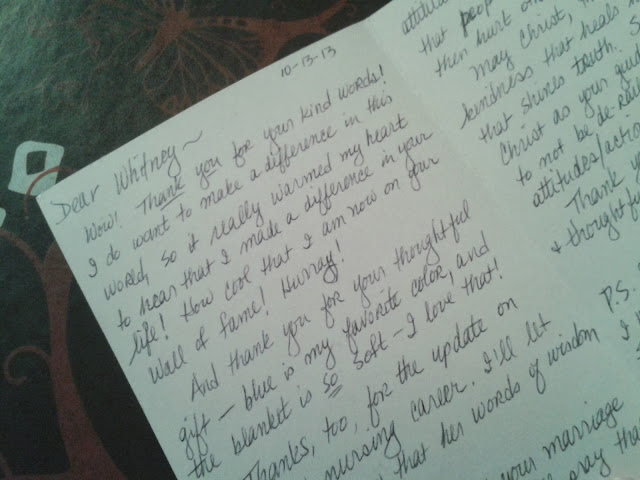 10-13-13
Dear Whitney~
Wow! Thank you for your kind words!
I do want to make a difference in this
world, so it really warmed my heart
to hear that I made a difference in your
life! How cool that I am now on your
Wall of Fame! Hurray!
And thank you for your thoughtful
gift – blue is my favorite color, and
the blanket is so soft – I love that!
Thanks, too, for the update on
nursing career. I'll let
that her words of wisdom
your marriage
pray that
that people
then hurt
May Christ,
kindness that heals
that shines truth.
Christ as your
to not be de-
attitudes/
Thank
& 
P.S.
I